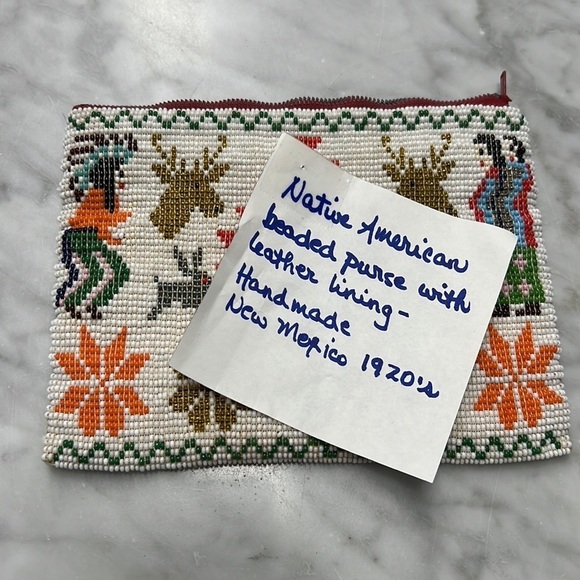 Native American
beaded purse with
leather lining-
Handmade
New Mexico 1920's